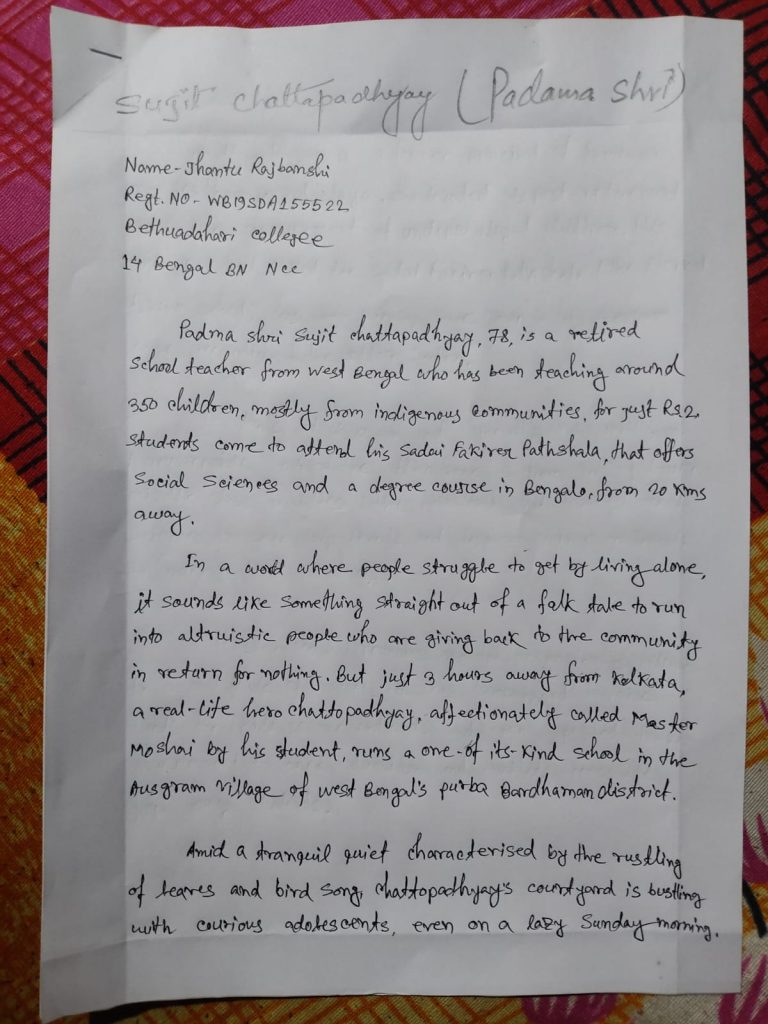 Sugit Chattapadhyay (Padama Shri)
Name - Jhantu Rajbanshi
Regt. NO - WB19SDA155522
Bethuadahari college
14 Bengal BN Ncc
Padma shri Sujit chattapadhyay, 78, is a retired
School teacher from west Bengal who has been teaching around
350 children, mostly from indigenous communities, for just Rs.2.
Students come to attend his Sadai Fakirer Pathshala, that offers
Social Sciences and a degree course in Bengalo, from 20 Kms
away.
In a world where people struggle to get by living alone,
it sounds like something straight out of a folk tale to run
into altruistic people who are giving back to the community
in return for nothing. But just 3 hours away from Kolkata,
a real-life hero chattopadhyay, affectionately called Master
Moshai by his student, runs a one-of its-kind school in the
Ausgram Village of west Bengal's purba Bardhaman district.
Amid a tranquil quiet characterised by the rustling
of leaves and bird song, chattopadhyay's courtyard is bustling
with courious adolescents, even on a lazy Sunday morning.